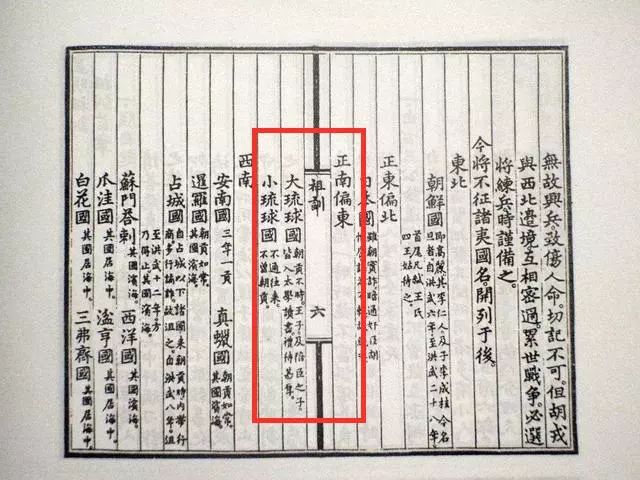 無故興兵。致傷人命。切記不可。但胡戎
與西北邊境互相密邇。累世戰爭。必選
將練兵時謹備之。
今將不征諸夷國名。開列于後。
東北
朝鮮國
即高麗其李仁人及子李成桂今名
旦者自洪武六年至洪武二十八年
首尾凡弒王氏
四王姑待之
正東偏北
本國
雖朝實詐暗通奸臣胡
正南偏東
祖訓
六
大琉球國
朝貢不時。王子及陪臣之子。
皆入太學讀書。禮待甚厚。
小琉球國
不通往來。
不曾朝貢。
西南
安南國
三年一貢
真蠟國
朝貢如常。
其國濱海。
暹羅國
朝貢如常。
其國濱海。
占城國
自占城以下諸國來朝貢時內帶行
商多行譎詐。故沮之。自洪武八年。沮
至洪武十二年。方
乃得止。其國濱海。
蘇門荅剌
其國濱海。
西洋國
其國濱海。
爪洼國
其國居海中。
湓亨國
其國居海中。
白花國
其國居海中。
三弗齊國
其國居海中。